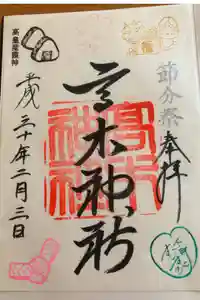 節分祭
奉拝
高木神社
高木神社
高皇産霊神
平成三十年二月三日